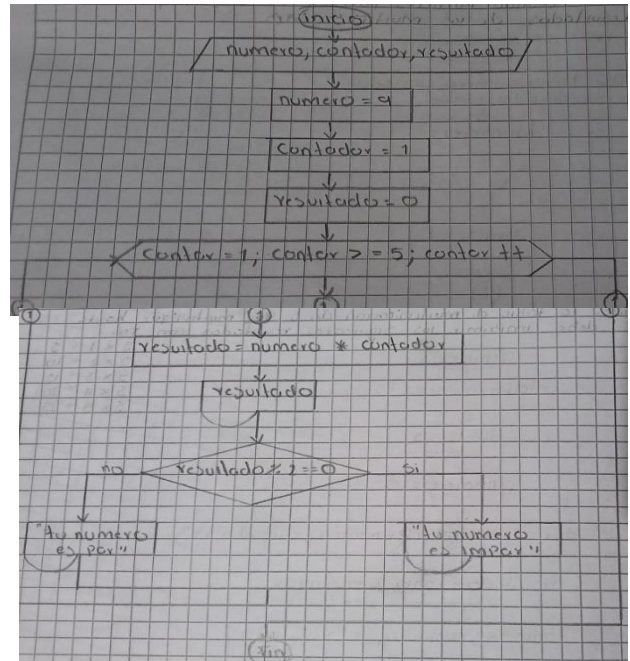 inicio
numero, contador, resultado
numero = 9
contador = 1
resultado = 0
contar = 1; contar > = 5; contar ++
1 1
1 1
resultado = numero * contador
resultado
no resultado % 2 == 0 si
"tu numero
es par"
"tu numero
es impar"
fin